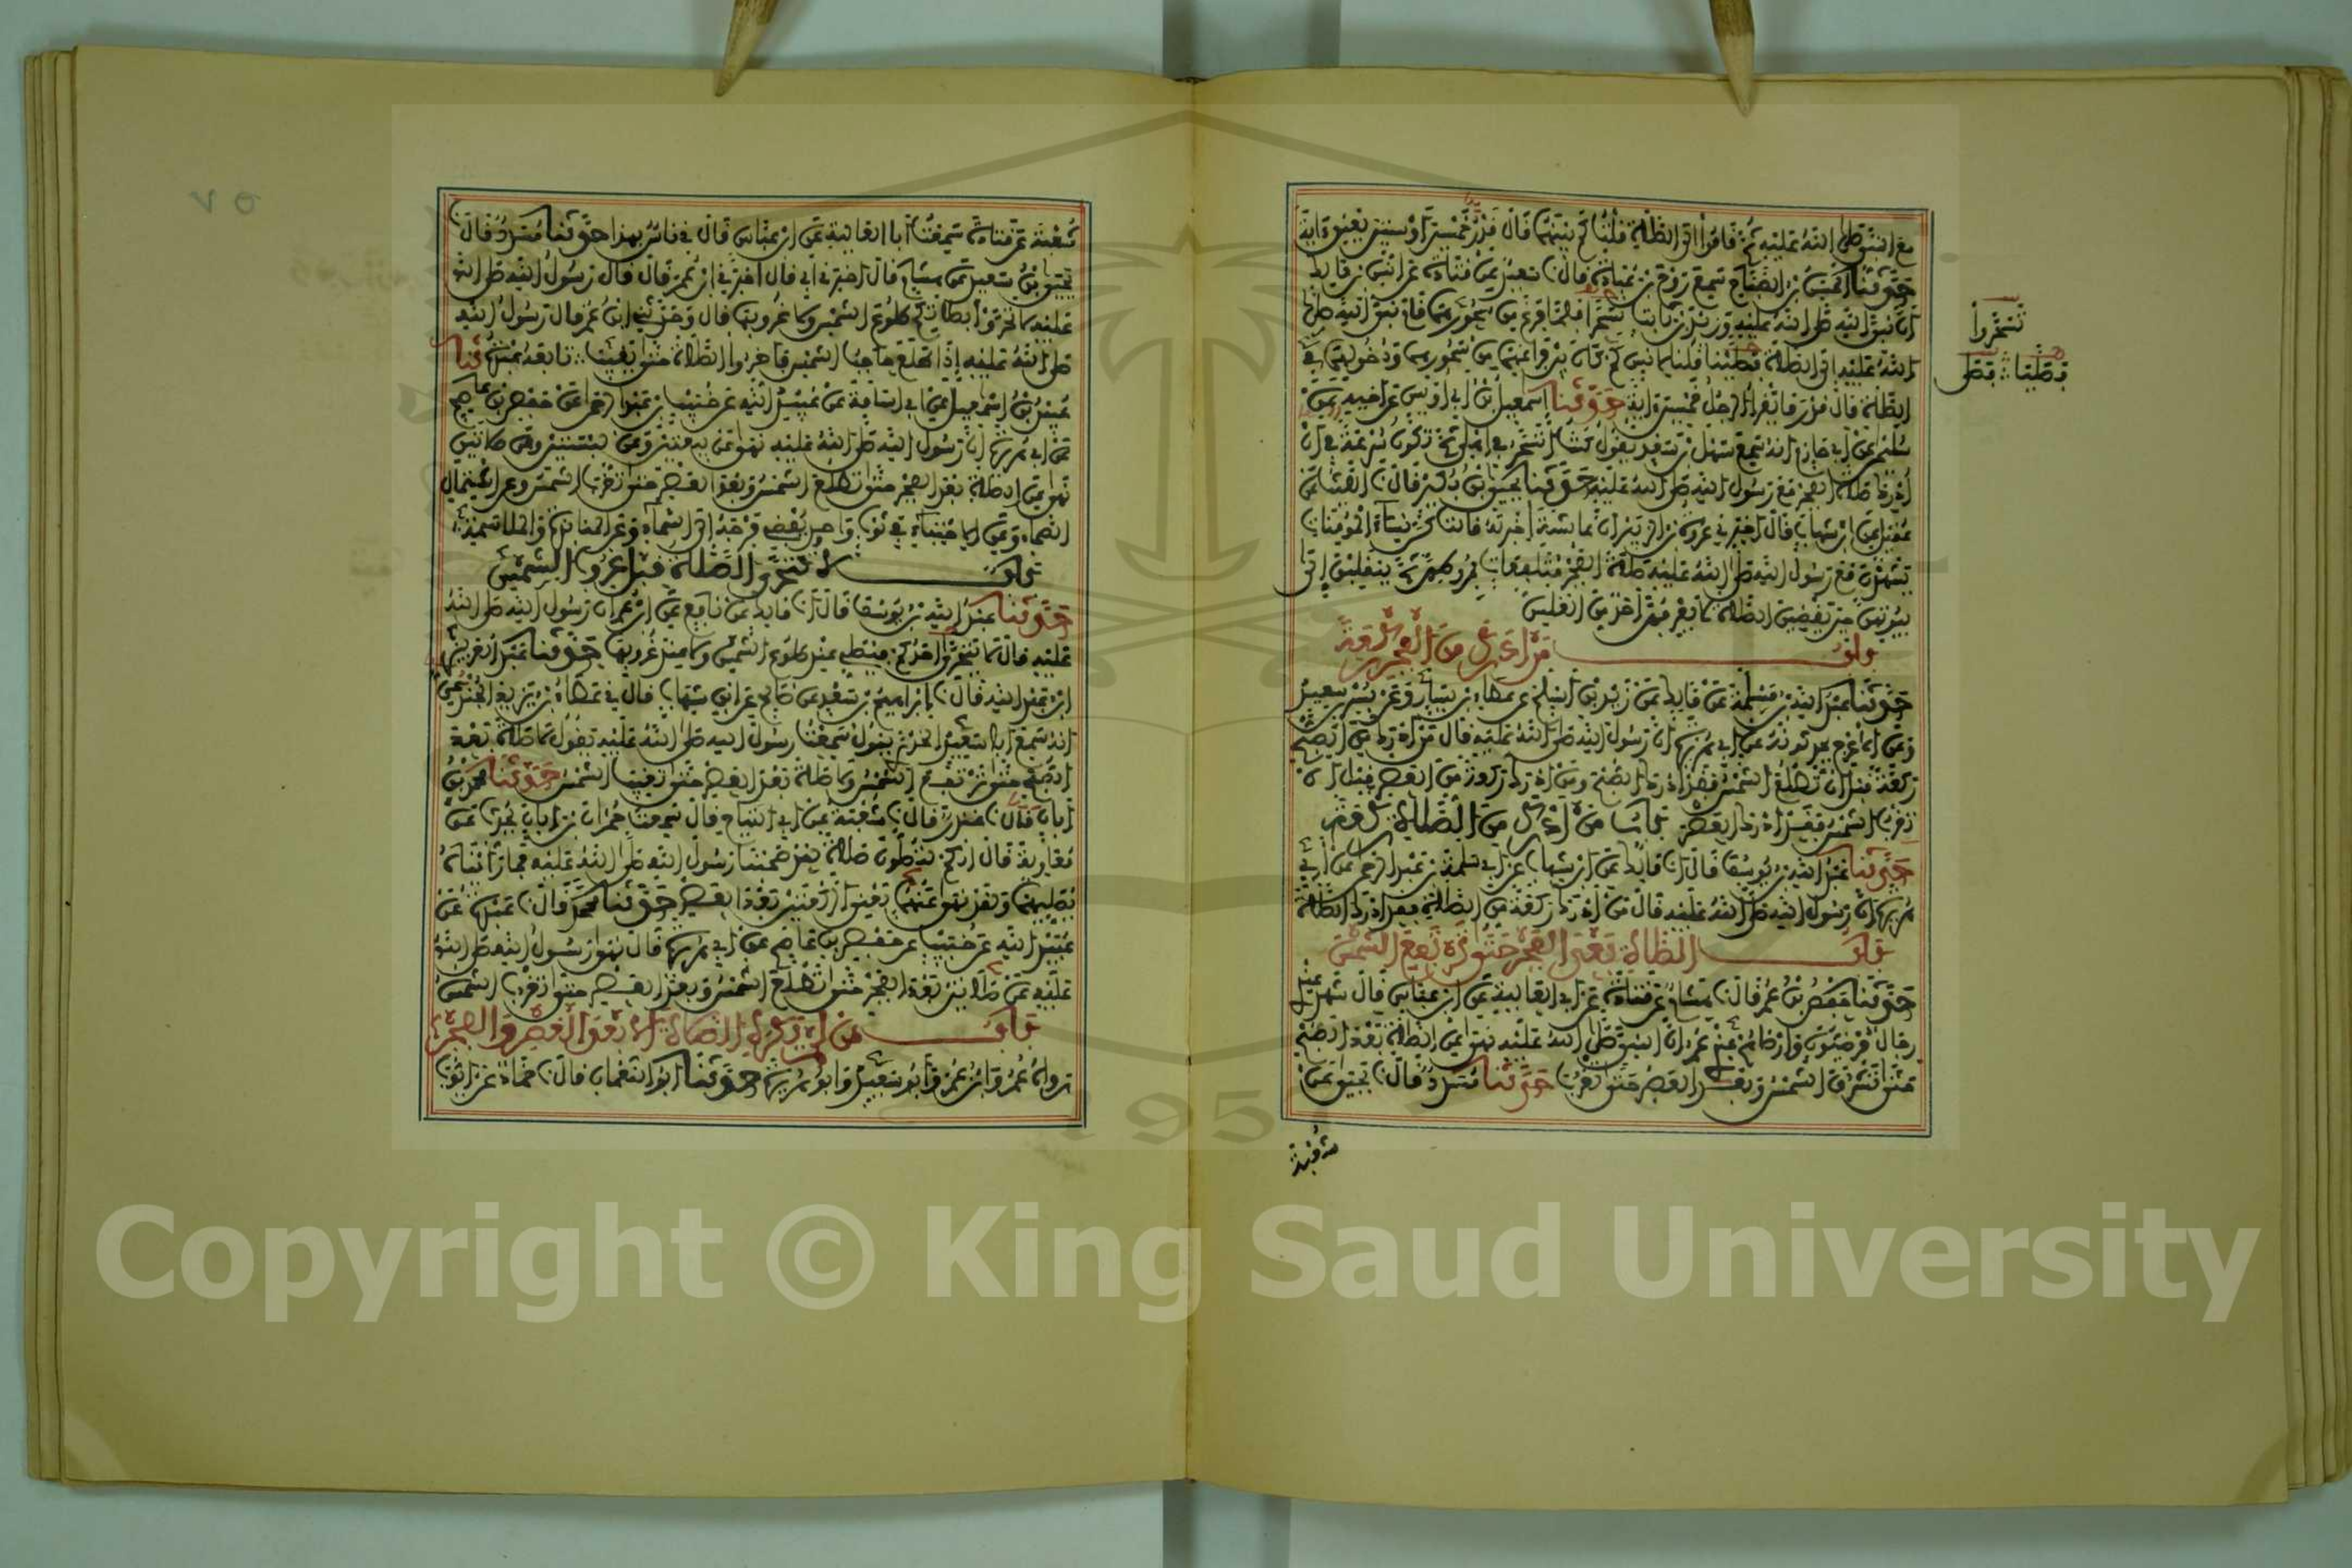 مع النبي صلى الله عليه ثم قاموا الى الصلاة قلت كم بينهما قال قدر خمسين أو ستين يعني ءاية
حدثنا الحسن بن الصباح سمع روح بن عبادة قال نا سعيد عن قتادة عن انس بن مالك
ان نبي الله صلى الله عليه وزيد بن ثابت تسحرا فلما فرغا من سحورهما قام نبي الله صلى
الله عليه الى الصلاة فصلينا قلنا لانس كم كان بين فراغهما من سحورهما ودخولهما في
الصلاة قال قدر ما يقرأ الرجل خمسين ءاية حدثنا إسمعيل بن ابي اويس عن اخيه عن
سليمن عن ابي حازم انه سمع سهل بن سعد يقول كنت اتسحر في اهلي ثم تكون سرعة بي ان
ادرك صلاة الفجر مع رسول الله صلى الله عليه حدثنا يحيى بن بكير قال نا الليث عن
عقيل عن ابن شهاب قال اخبرني عروة بن الزبير ان عائشة اخبرته قالت كن نساء المؤمنات
يشهدن مع رسول الله صلى الله عليه صلاة الفجر متلفعات بمروطهن ثم ينقلبن إلى
بيوتهن حين يقضين الصلاة لا يعرفهن أحد من الغلس
باب من ادرك من الفجر ركعة
حدثنا عبد الله بن مسلمة عن مالك عن زيد بن اسلم عن عطاء بن يسار وعن بسر بن سعيد
وعن الاعرج يحدثونه عن ابي هريرة ان رسول الله صلى الله عليه قال من ادرك من الصبح
ركعة قبل ان تطلع الشمس فقد ادرك الصبح ومن ادرك ركعة من العصر قبل ان
تغرب الشمس فقد ادرك العصر باب من ادرك من الصلاة ركعة
حدثنا عبد الله بن يوسف قال انا مالك عن ابن شهاب عن ابي سلمة بن عبد الرحمن عن ابي
هريرة ان رسول الله صلى الله عليه قال من ادرك ركعة من الصلاة فقد ادرك الصلاة
باب الصلاة بعد الفجر حتى ترتفع الشمس
حدثنا حفص بن عمر قال نا هشام عن قتادة عن ابي العالية عن ابن عباس قال شهد عندي
رجال مرضيون وارضاهم عندي عمر ان النبي صلى الله عليه نهى عن الصلاة بعد الصبح
حتى تشرق الشمس وبعد العصر حتى تغرب حدثنا مسدد قال نا يحيى عن
شعبة
تسحروا
فصلينا فصلى
شعبة عن قتادة سمعت ابا العالية عن ابن عباس قال ني ناس بهذا حدثنا مسدد قال نا
يحيى بن سعيد عن هشام قال اخبرني ابي قال اخبرني ابن عمر قال قال رسول الله صلى الله
عليه لا تحروا بصلاتكم طلوع الشمس ولا غروبها قال وحدثني ابن عمر قال رسول الله
صلى الله عليه إذا طلع حاجب الشمس فاخروا الصلاة حتى تغيب تابعه عبدة نا
عبيد بن اسماعيل عن ابي اسامة عن عبيد الله عن خبيب بن عبد الرحمن عن حفص بن عاصم
عن ابي هريرة ان رسول الله صلى الله عليه نهى عن بيعتين وعن لبستين وعن صلاتين
نهى عن الصلاة بعد الفجر حتى تطلع الشمس وبعد العصر حتى تغرب الشمس وعن اشتمال
الصماء وعن الاحتباء في ثوب واحد يفضي بفرجه الى السماء وعن المنابذة والملامسة
باب لا تتحرى الصلاة قبل غروب الشمس
حدثنا عبد الله بن يوسف قال انا مالك عن نافع عن ابن عمر ان رسول الله صلى الله
عليه قال لا يتحرى احدكم فيصلي عند طلوع الشمس ولا عند غروبها حدثنا عبد العزيز
ابن عبد الله قال نا إبراهيم بن سعد عن صالح عن ابن شهاب قال ني عطاء بن يزيد الجندعي
انه سمع ابا سعيد الخدري يقول سمعت رسول الله صلى الله عليه يقول لا صلاة بعد
الصبح حتى ترتفع الشمس ولا صلاة بعد العصر حتى تغيب الشمس حدثنا محمد بن
أبان قال نا غندر قال نا شعبة عن ابي التياح قال سمعت حمران بن أبان يحدث عن
معاوية قال انكم تصلون صلاة لقد صحبنا رسول الله صلى الله عليه فما رأيناه
يصليهما ولقد نهى عنهما يعني الركعتين بعد العصر حدثنا محمد قال نا عبدة عن
عبيد الله عن خبيب عن حفص بن عاصم عن ابي هريرة قال نهى رسول الله صلى الله
عليه عن صلاتين بعد الفجر حتى تطلع الشمس وبعد العصر حتى تغرب الشمس
باب من لم يكره الصلاة الا بعد العصر والفجر
رواه عمر وابن عمر وابو سعيد وابو هريرة حدثنا ابو النعمان قال نا حماد عن ايوب
٧٥
Copyright © King Saud University
1957